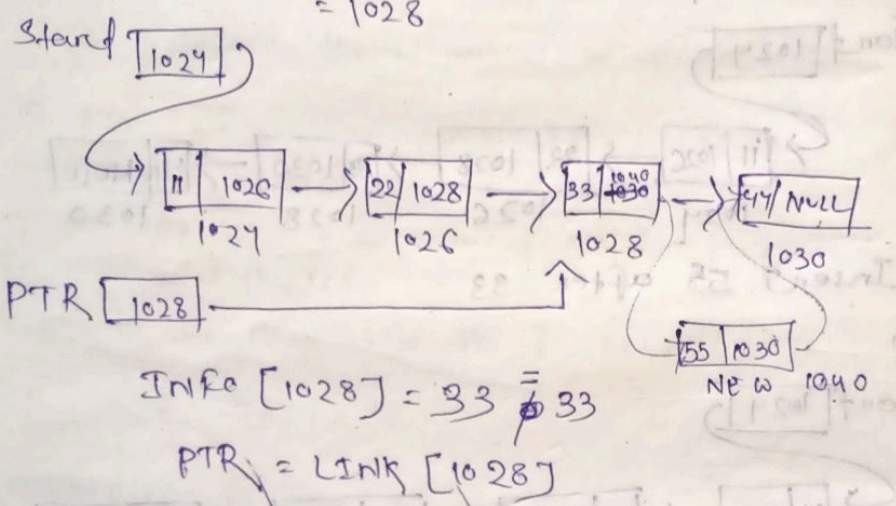 = 1028
Start 1024
11 1026 22 1028 33 1040 1030 44 NULL
1024 1026 1028 1030
PTR 1028
55 1030
NEW 1040
INFO [1028] = 33 = 33
PTR = LINK [1028]